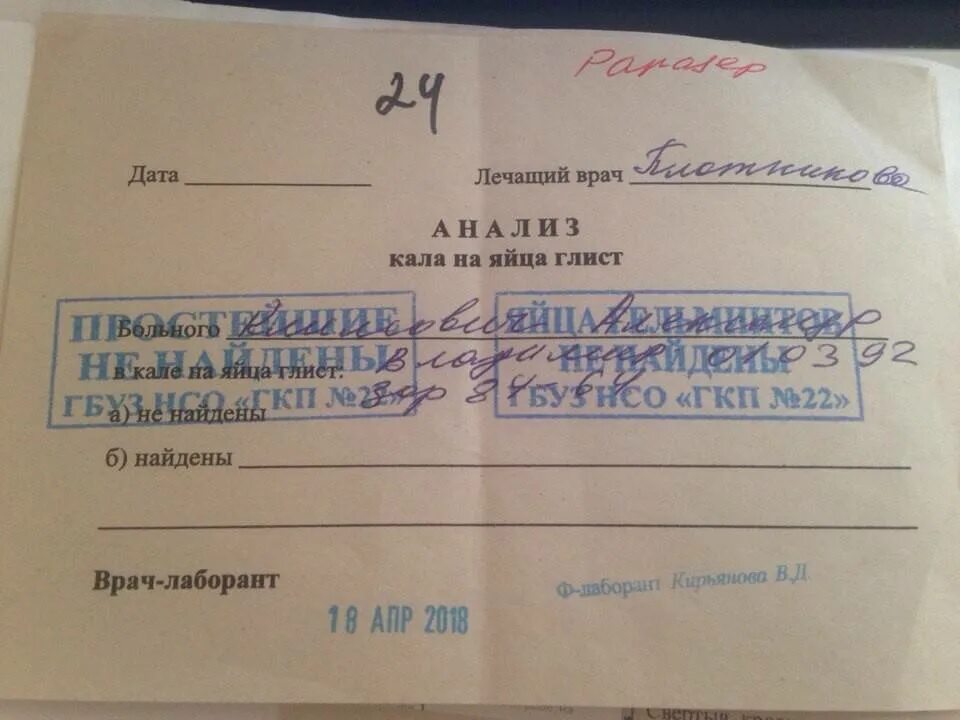 24
Дата Лечащий врач Плотникова
АНАЛИЗ
кала на яйца глист
ПРОСТЕЙШИЕ
НЕ НАЙДЕНЫ
ГБУЗ НСО «ГКП №22»
ЯЙЦА ГЕЛЬМИНТОВ
НЕ НАЙДЕНЫ
ГБУЗ НСО «ГКП №22»
Больного Александр
в кале на яйца глист: Владимир 010392
а) не найдены
б) найдены
Врач-лаборант
Ф-лаборант Кирьянова В.Д.
18 АПР 2018